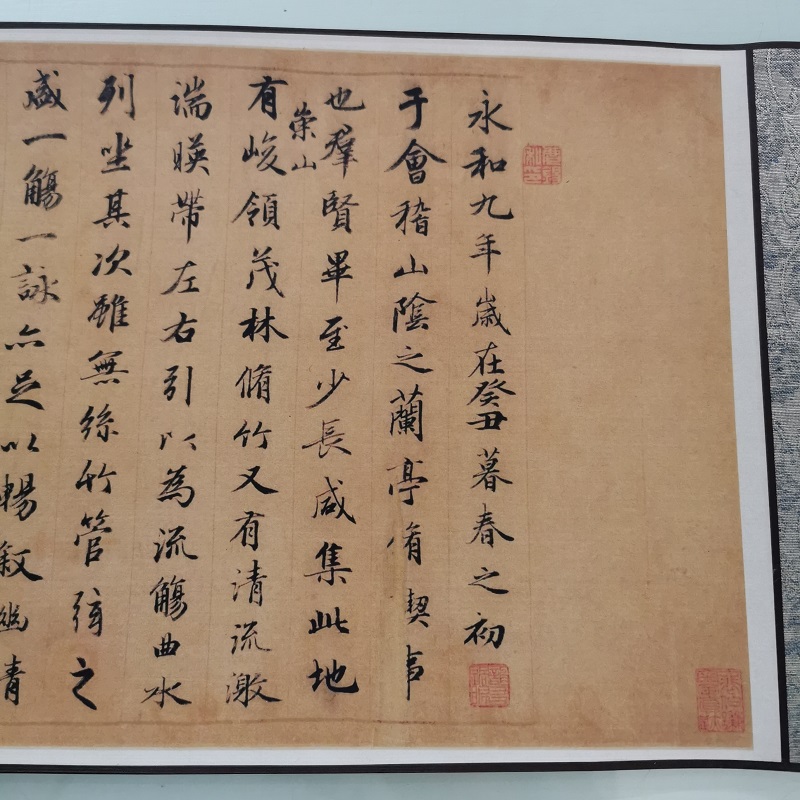 永和九年歲在癸丑暮春之初
于會稽山陰之蘭亭脩禊事
也羣賢畢至少長咸集此地
崇山
有峻領茂林脩竹又有清流激
湍暎帶左右引以為流觴曲水
列坐其次雖無絲竹管弦之
盛一觴一詠亦足以暢敘幽情